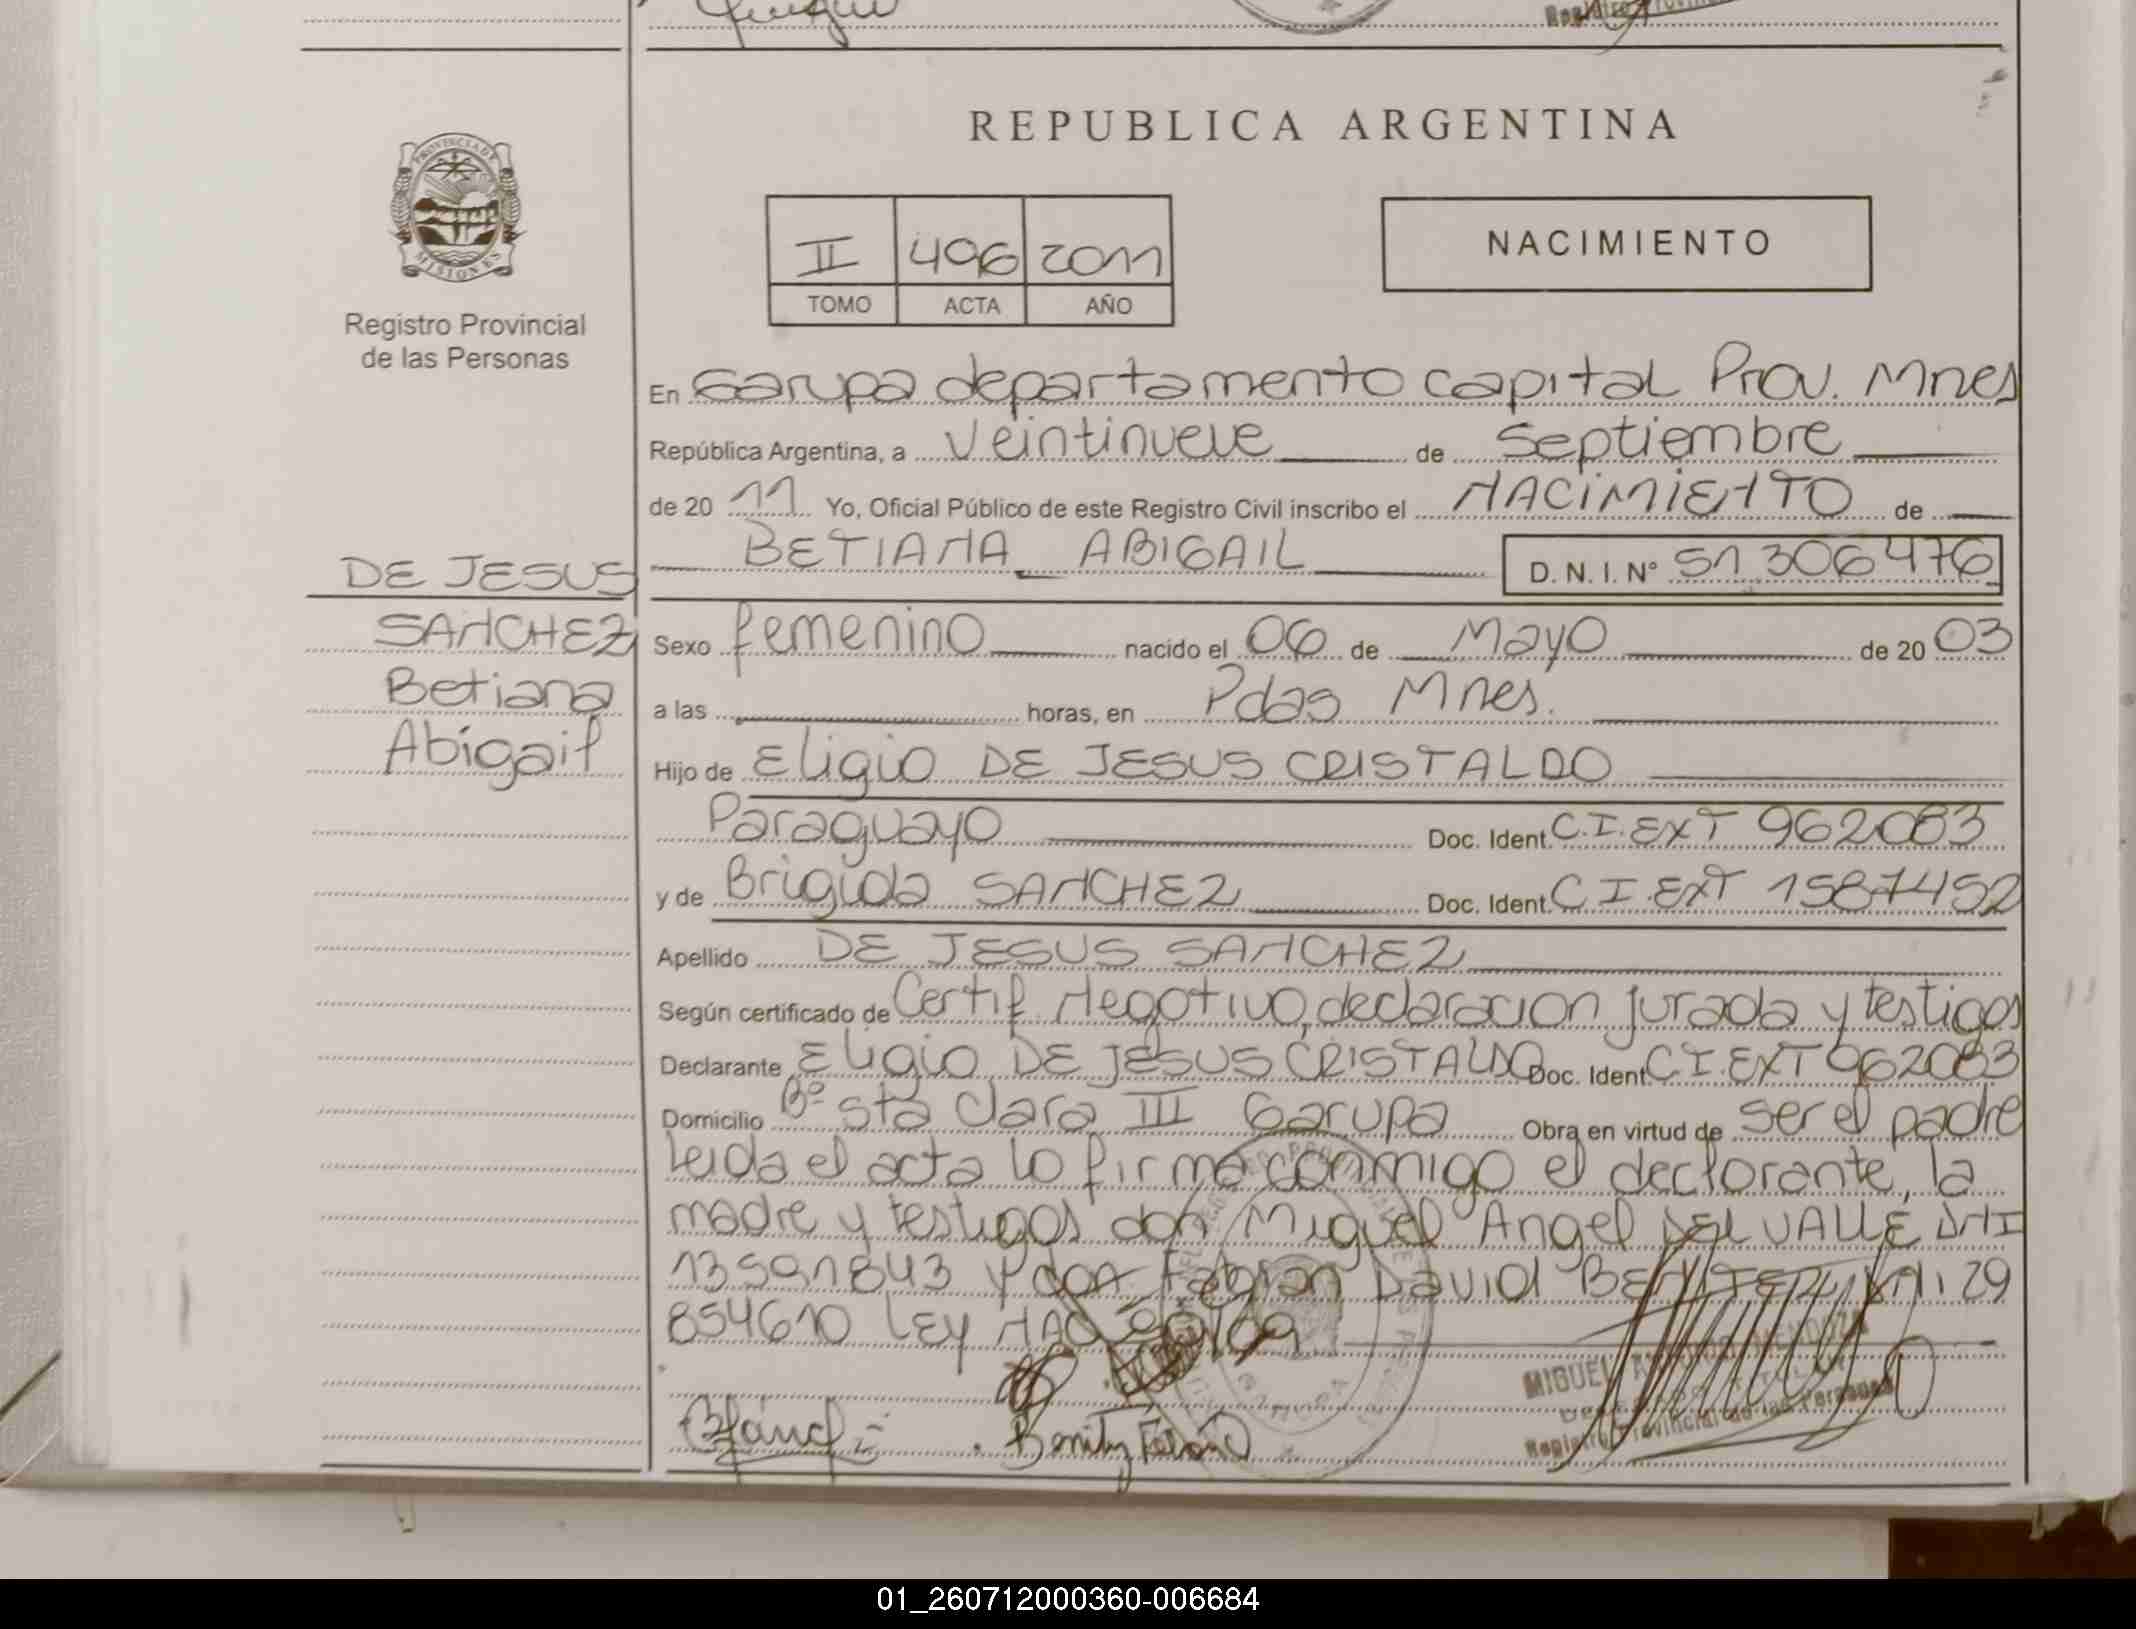 REPUBLICA ARGENTINA
PROVINCIA DE MISIONES
Registro Provincial
de las Personas
II 496 2011
TOMO ACTA AÑO
NACIMIENTO
En Garupa departamento capital Prov. Mnes
República Argentina, a veintinueve de septiembre
de 20 11 Yo, Oficial Público de este Registro Civil inscribo el NACIMIENTO de
BETIANA ABIGAIL D. N. I. N° 51 306476
DE JESUS
SANCHEZ
Betiana
Abigail
Sexo femenino nacido el 06 de Mayo de 20 03
a las horas, en Pdas Mnes.
Hijo de Eligio DE JESUS CRISTALDO
Paraguayo Doc. Ident. C.I. EXT 962083
y de Brigida SANCHEZ Doc. Ident. C I. EXT 1587452
Apellido DE JESUS SANCHEZ
Según certificado de Certif. Negativo, declaracion jurada y testigos
Declarante Eligio DE JESUS CRISTALDO Doc. Ident. C I. EXT 962083
Domicilio Bº sta Clara III Garupa Obra en virtud de ser el padre
Leida el acta lo firma conmigo el declarante, la
madre y testigos don Miguel Angel DEL VALLE DNI
13591843 y don Fabian David BENITEZ DNI 29
854610 LEY
MIGUEL MENDOZA
Registro Provincial de las Personas
01_260712000360-006684